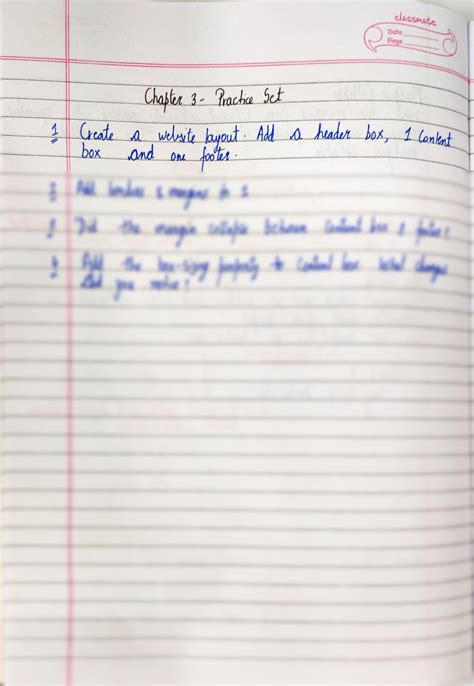 classmate
Date
Page
Chapter 3 - Practice Set
1 Create a website layout. Add a header box, 1 content
box and one footer.
Add borders & margins to 1
Did the margin collapse between content box & footer?
4 Add the box-sizing property to content box. What changes
did you notice?